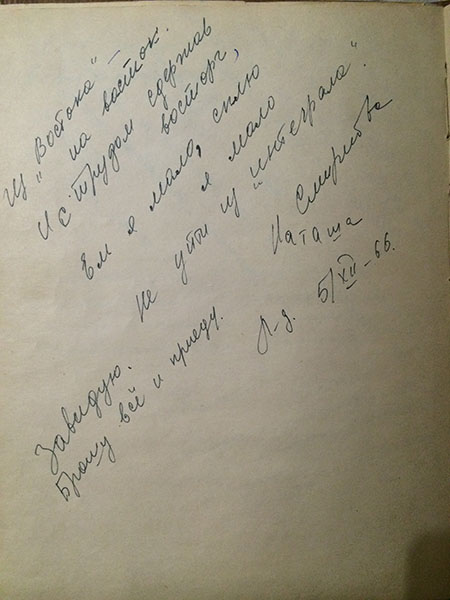 Из "Востока"
на восток.
И с трудом сдержав
восторг,
Ем я мало, сплю
я мало
Не уйти из "Интеграла".
Смирнова
Наташа
Л-д. 5/XII-66.
Завидую.
Брошу всё и приеду.